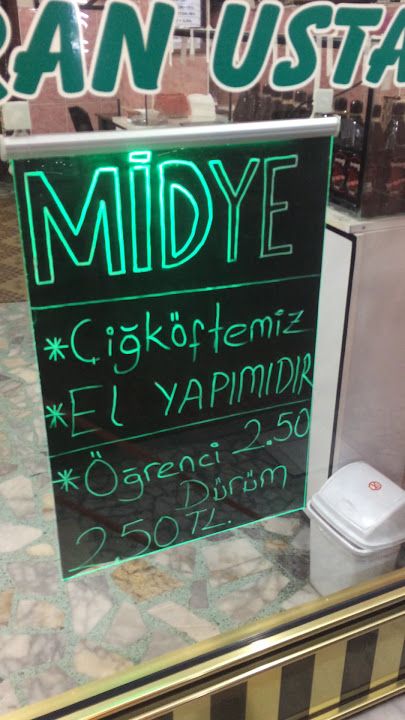 RAN USTA
MİDYE
*Çiğköftemiz
*El YAPIMIDIR
*Öğrenci 2.50
Dürüm
2.50 TL.